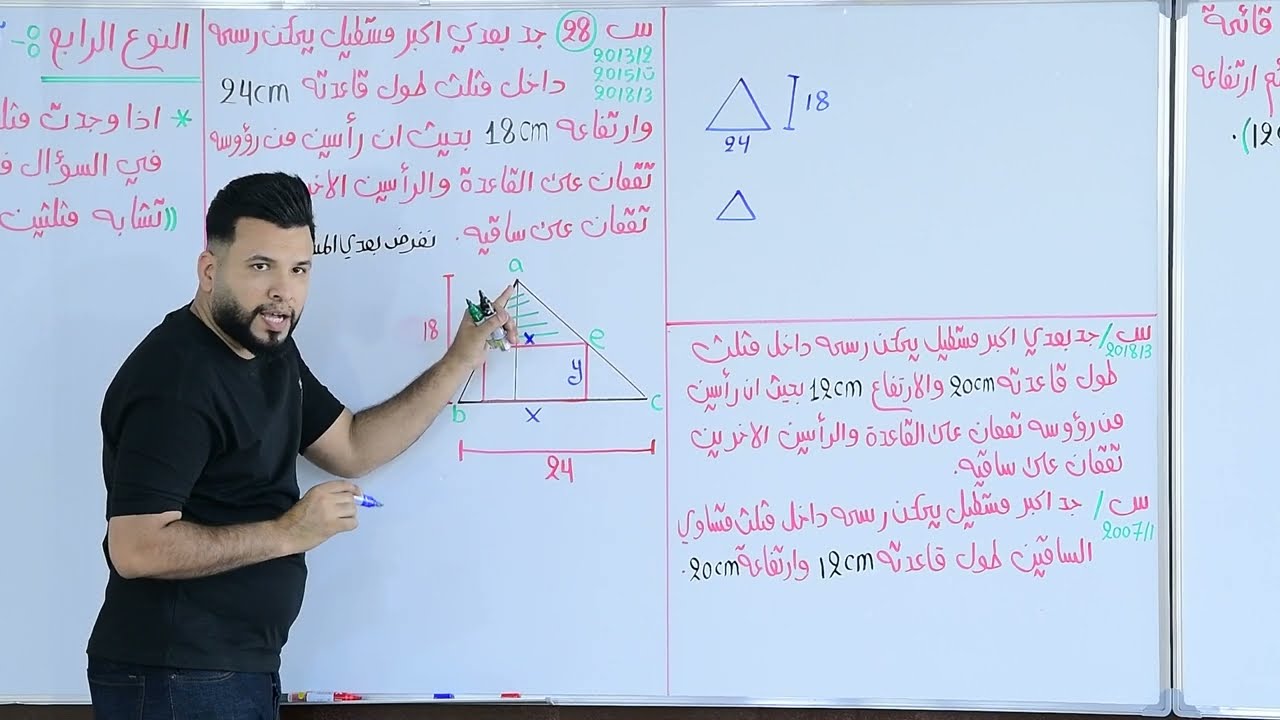 س 28 جد بعدي اكبر مستطيل يمكن رسمه
2013/2
2015/ت
2018/3
داخل مثلث طول قاعدته 24cm
وارتفاعه 18cm بحيث ان رأسين من رؤوسه
تقعان على القاعدة والرأسين الاخر
تقعان على ساقيه.
نفرض بعدي
a
18
x
e
y
b
x
c
24
18
24
س/ جد بعدي اكبر مستطيل يمكن رسمه داخل مثلث
2018/3
طول قاعدته 20cm والارتفاع 12cm بحيث ان رأسين
من رؤوسه تقعان على القاعدة والرأسين الاخرين
تقعان على ساقيه.
س/ جد اكبر مستطيل يمكن رسمه داخل مثلث متساوي
2007/1
الساقين طول قاعدته 12cm وارتفاعه 20cm.
النوع الرابع :-
* اذا وجدت
في السؤال
((تشابه مثلثين
قائمة
ارتفاعه